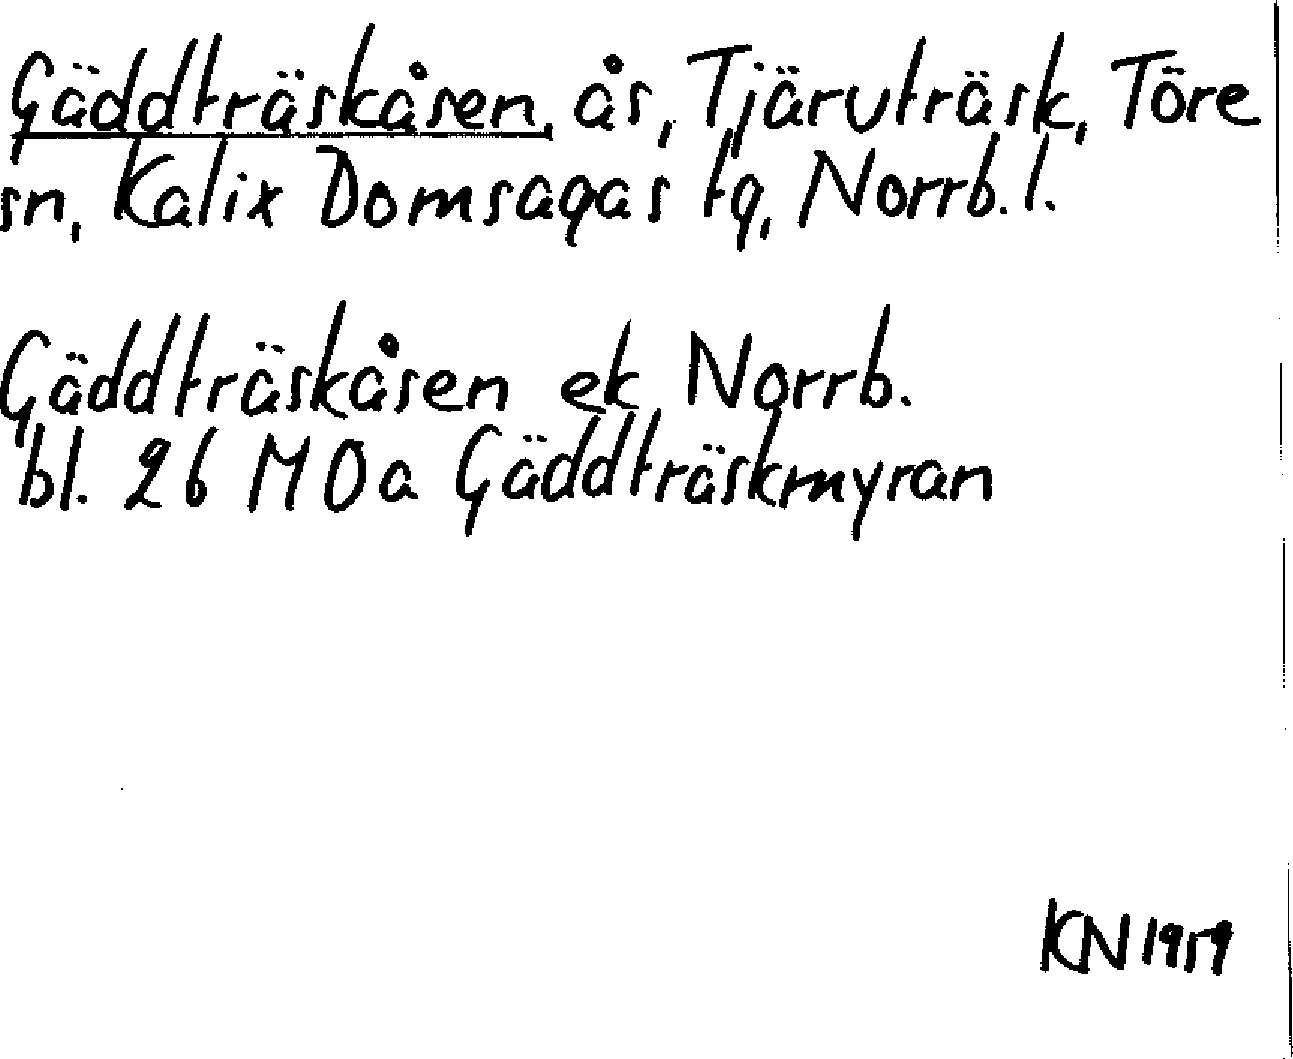 Gäddträskåsen, ås, Tjäruträsk, Töre
sn, Kalix Domsagas tg, Norrb. l.
Gäddträskåsen ek Norrb.
bl. 26 MOa Gäddträskmyran
KN 1959